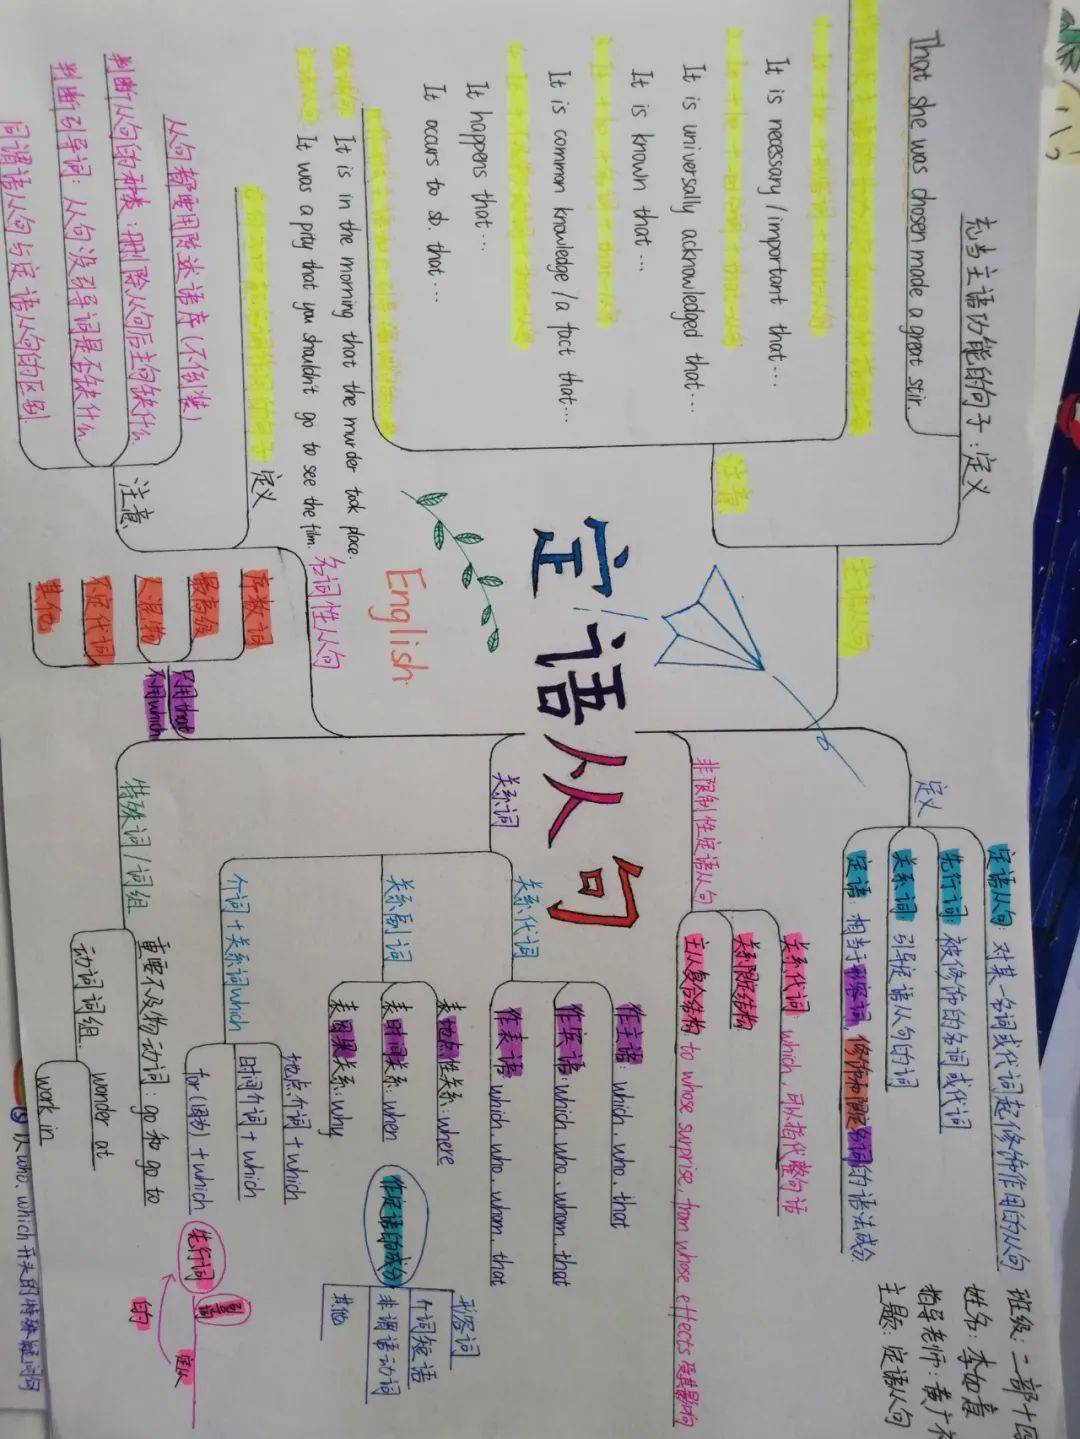 充当主语功能的句子：定义
That she was chosen made a great stir.
注意
It is necessary / important that...
It is universally acknowledged that...
It is known that...
It is common knowledge / a fact that...
It happens that...
It occurs to sb. that...
It is in the morning that the murder took place.
It was a pity that you shouldn't go to see the film.
主语从句
定义
注意
从句都要用陈述语序(不倒装)
判断从句的种类：删除从句后主句缺什么
判断引导词：从句没引导词是否缺什么
同谓语从句与定语从句的区别
名词性从句
English
定语从句
定义
定语从句：对某一名词或代词起修饰作用的从句
先行词：被修饰的名词或代词
关系词：引导定语从句的词
定语：相当于形容词，修饰和限定名词的语法成分
非限制性定语从句
关系代词：which，可以指代整句话
关系限定结构
主从复合结构 to whose surprise, from whose effects 受其影响
关系词
关系代词
作主语：which、who、that
作宾语：which、who、whom、that
作表语：which、who、whom、that
关系副词
表地点性关系：where
表时间关系：when
表因果关系：why
介词+关系词which
地点介词+which
时间介词+which
for(因为)+which
特殊词/词组
重要不及物动词：go和go to
动词词组
wonder at
work in
只用that
不用which
序数词
最高级
人混物
不定代词
其他
作定语的成分
形容词
介词短语
非谓语动词
其他
先行词
定从
的
班级：二部十四
姓名：李如意
指导老师：黄广
主题：定语从句
⑤ 以who、which开头的特殊疑问句